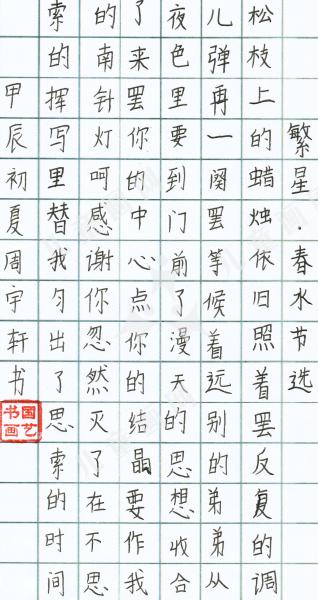 繁星.春水节选
松枝上的蜡烛依旧照着罢反复的调
儿弹再一阕罢等候着远别的弟弟从
夜色里要到门前了漫天的思想收合
了来罢你的中心点你的结晶要作我
的南针灯呵感谢你忽然灭了在不思
索的挥写里替我匀出了思索的时间
甲辰初夏周宇轩书
国艺
书画